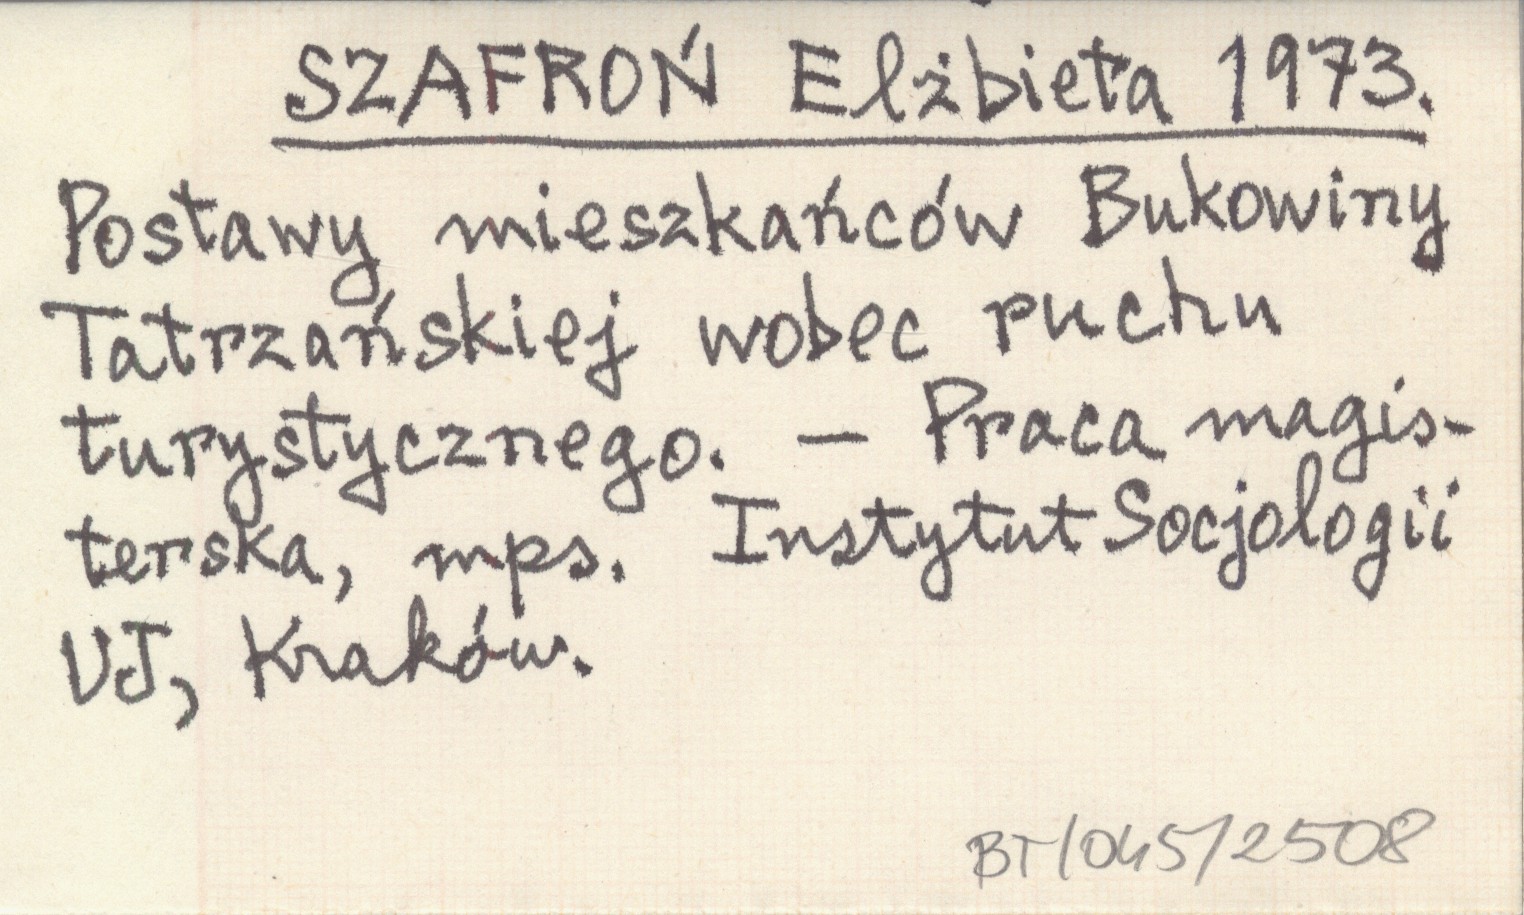 SZAFROŃ Elżbieta 1973.
Postawy mieszkańców Bukowiny
Tatrzańskiej wobec ruchu
turystycznego. — Praca magis-
terska, mps. Instytut Socjologii
UJ, Kraków.
BT/045/2508